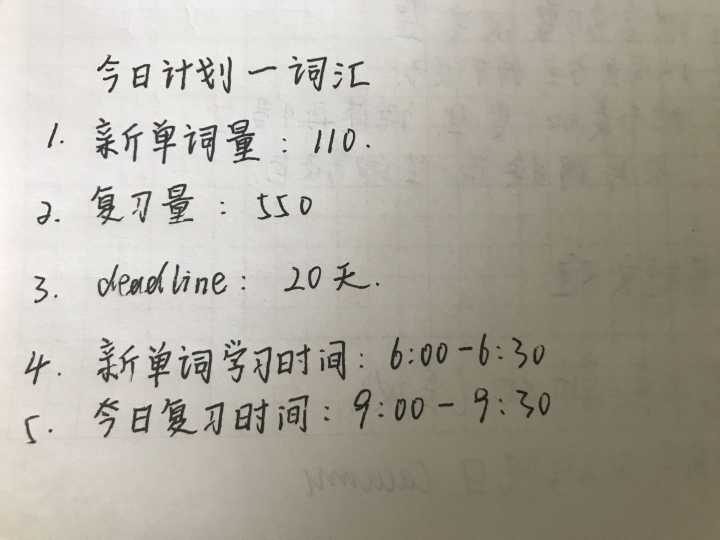 今日计划一词汇
1. 新单词量：110.
2. 复习量：550
3. deadline：20天.
4. 新单词学习时间：6:00-6:30
5. 今日复习时间：9:00-9:30